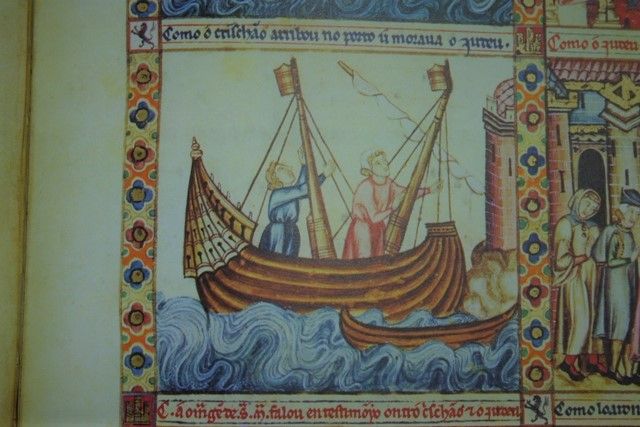 Como o crischão arribou no porto u moraua o iudeu.
Como o iudeu
C. a omagē de. S. M. falou en testimōjo ontro c̃schão ⁊ o iudeu
Como loaron